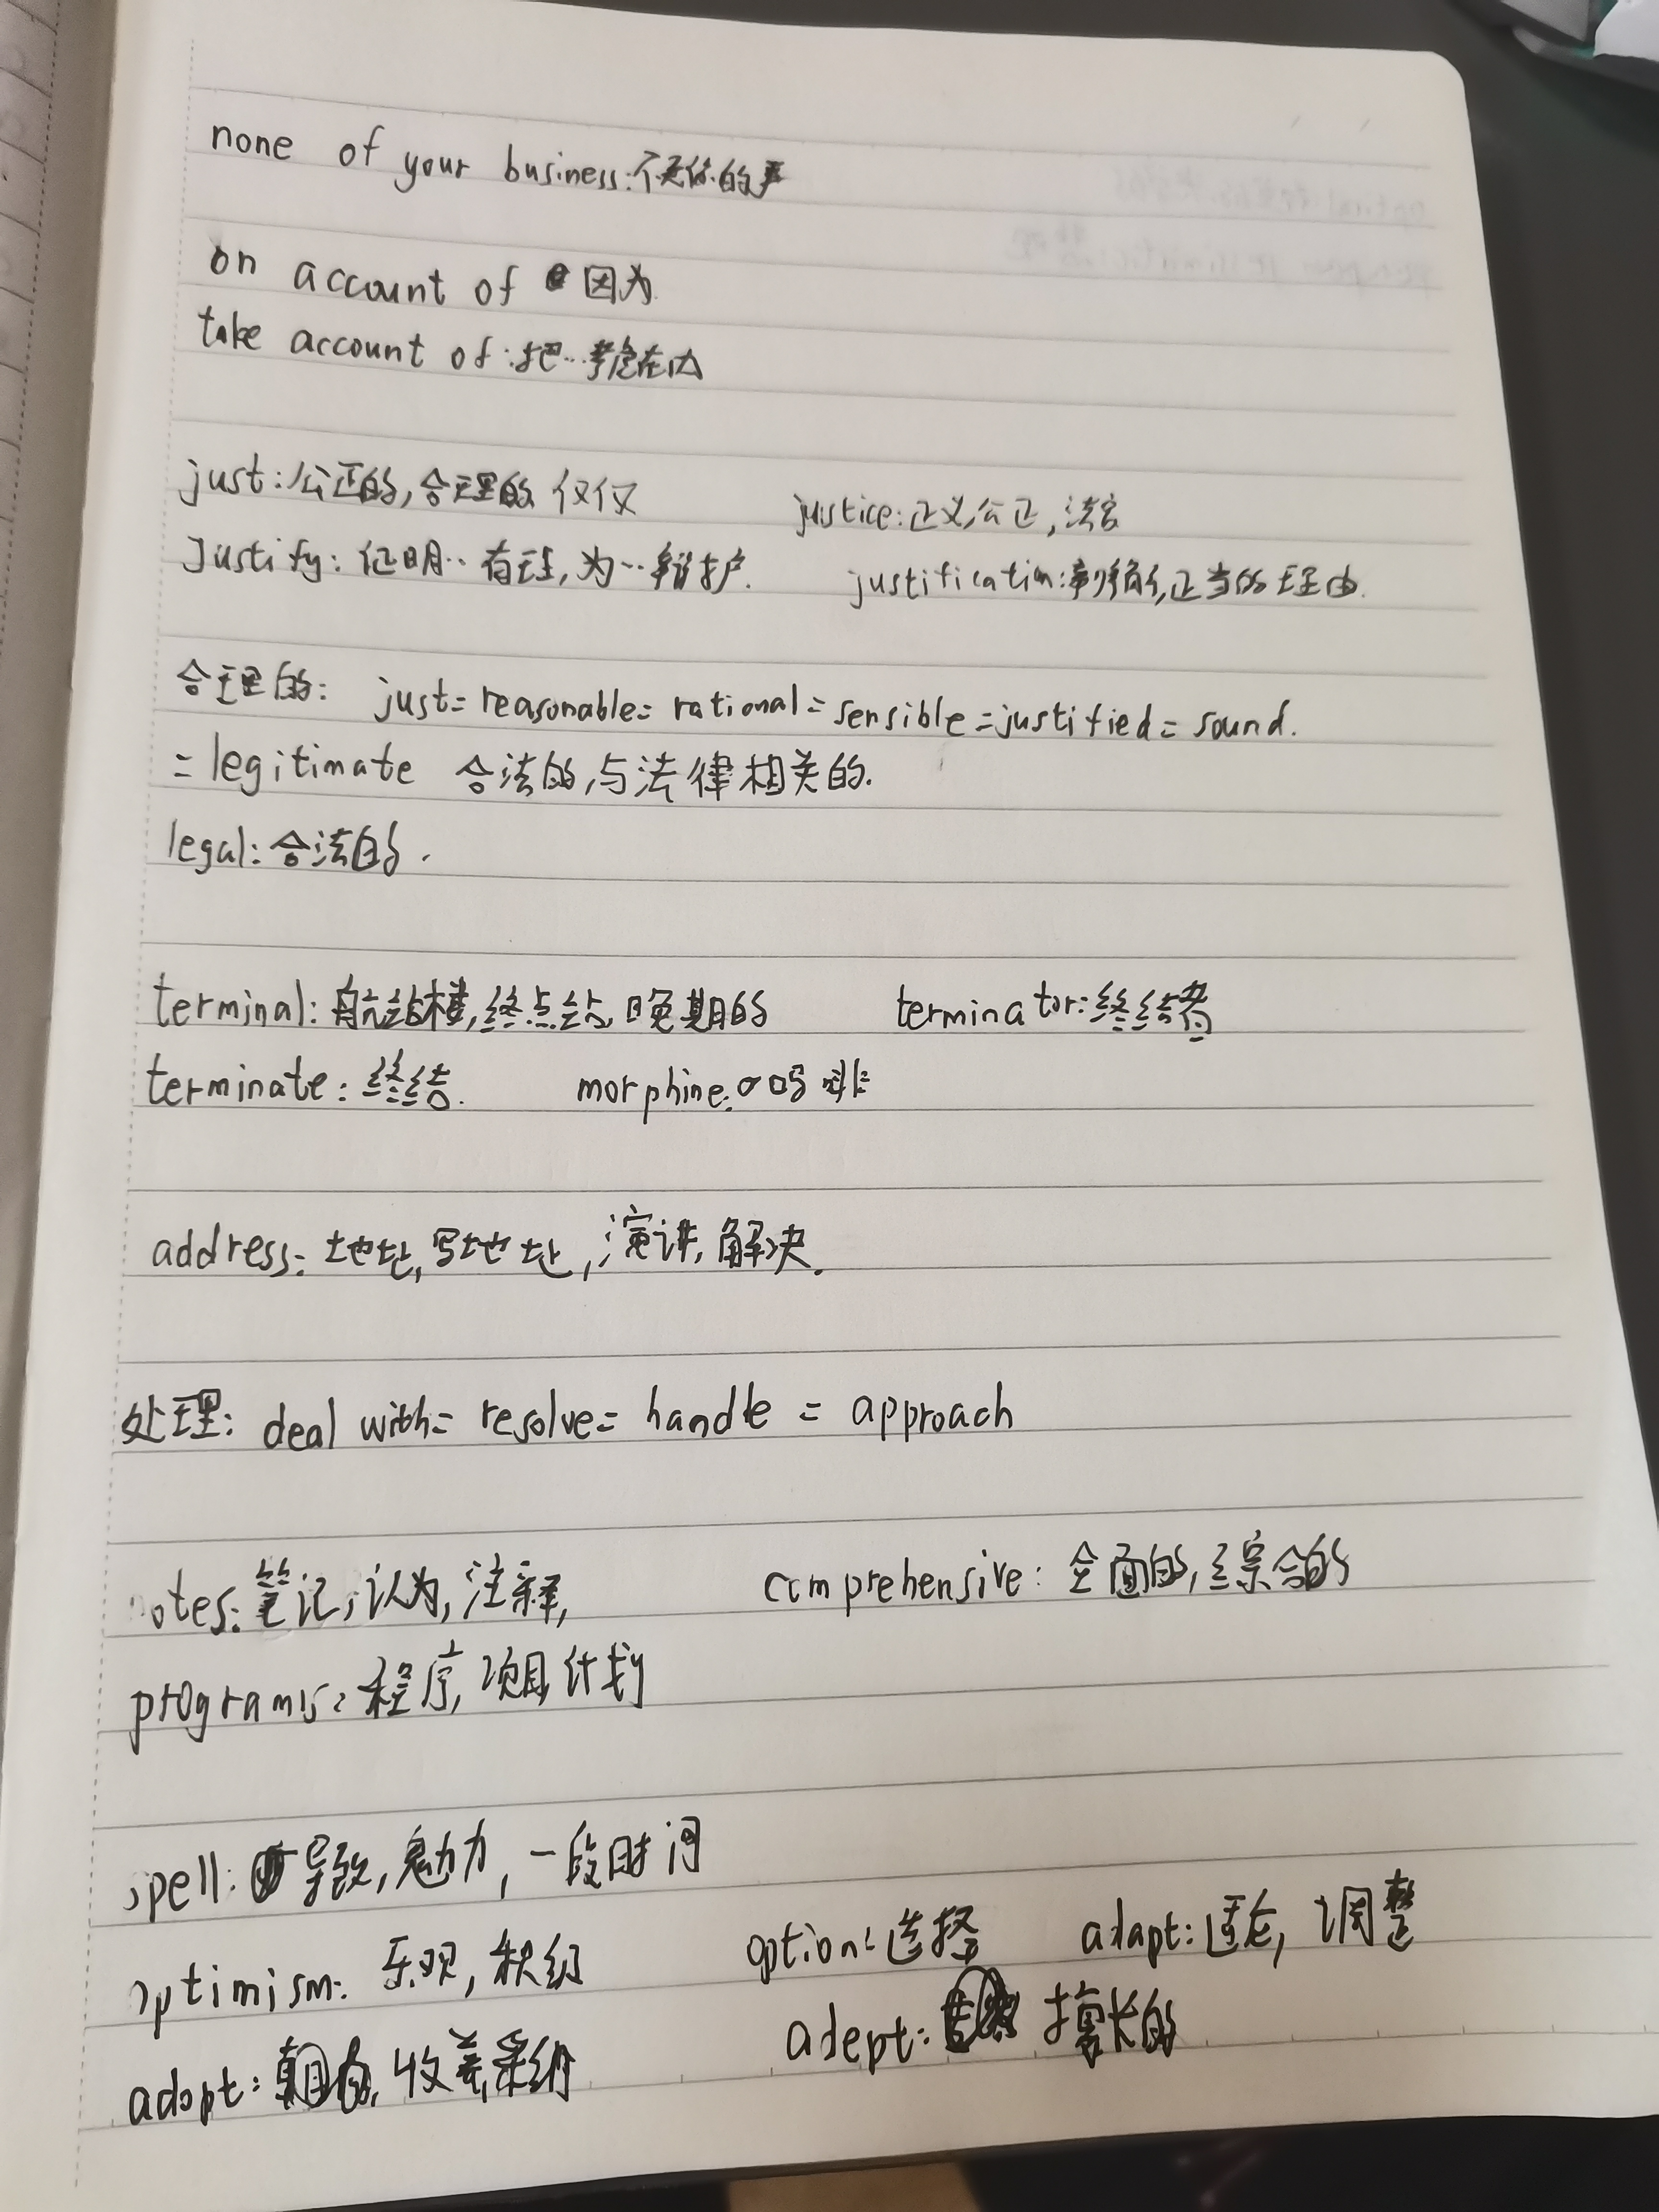 none of your business: 不是你的事
on account of 因为
take account of: 把…考虑在内
just: 公正的, 合理的 仅仅 justice: 正义, 公正, 法官
Justify: 证明…有理, 为…辩护. justification: 辩解, 正当的理由.
合理的: just = reasonable = rational = sensible = justified = sound.
= legitimate 合法的, 与法律相关的.
legal: 合法的.
terminal: 航站楼, 终点站, 晚期的 terminator: 终结者
terminate: 终结. morphine: 吗啡
address: 地址, 写地址, 演讲, 解决.
处理: deal with = resolve = handle = approach
notes: 笔记, 认为, 注释, comprehensive: 全面的, 综合的
programs: 程序, 项目, 计划
spell: 导致, 魅力, 一段时间
optimism: 乐观, 积极 option: 选择 adapt: 适应, 调整
adopt: 收养, 采纳 adept: 擅长的